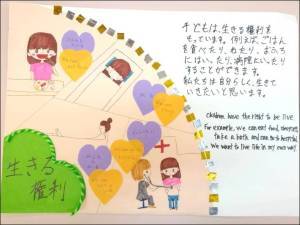 子どもは、生きる権利を
もっています。例えば、ごはん
を食べたり、ねたり、おふろ
にはいったり、病院にいったり
することができます。
私たちは自分らしく、生きて
いきたいと思います。
children have the right to be live.
For example, we can eat food, sleeping,
take a bath and can to to hospital.
We want to live life in my own way.
生きる
権利